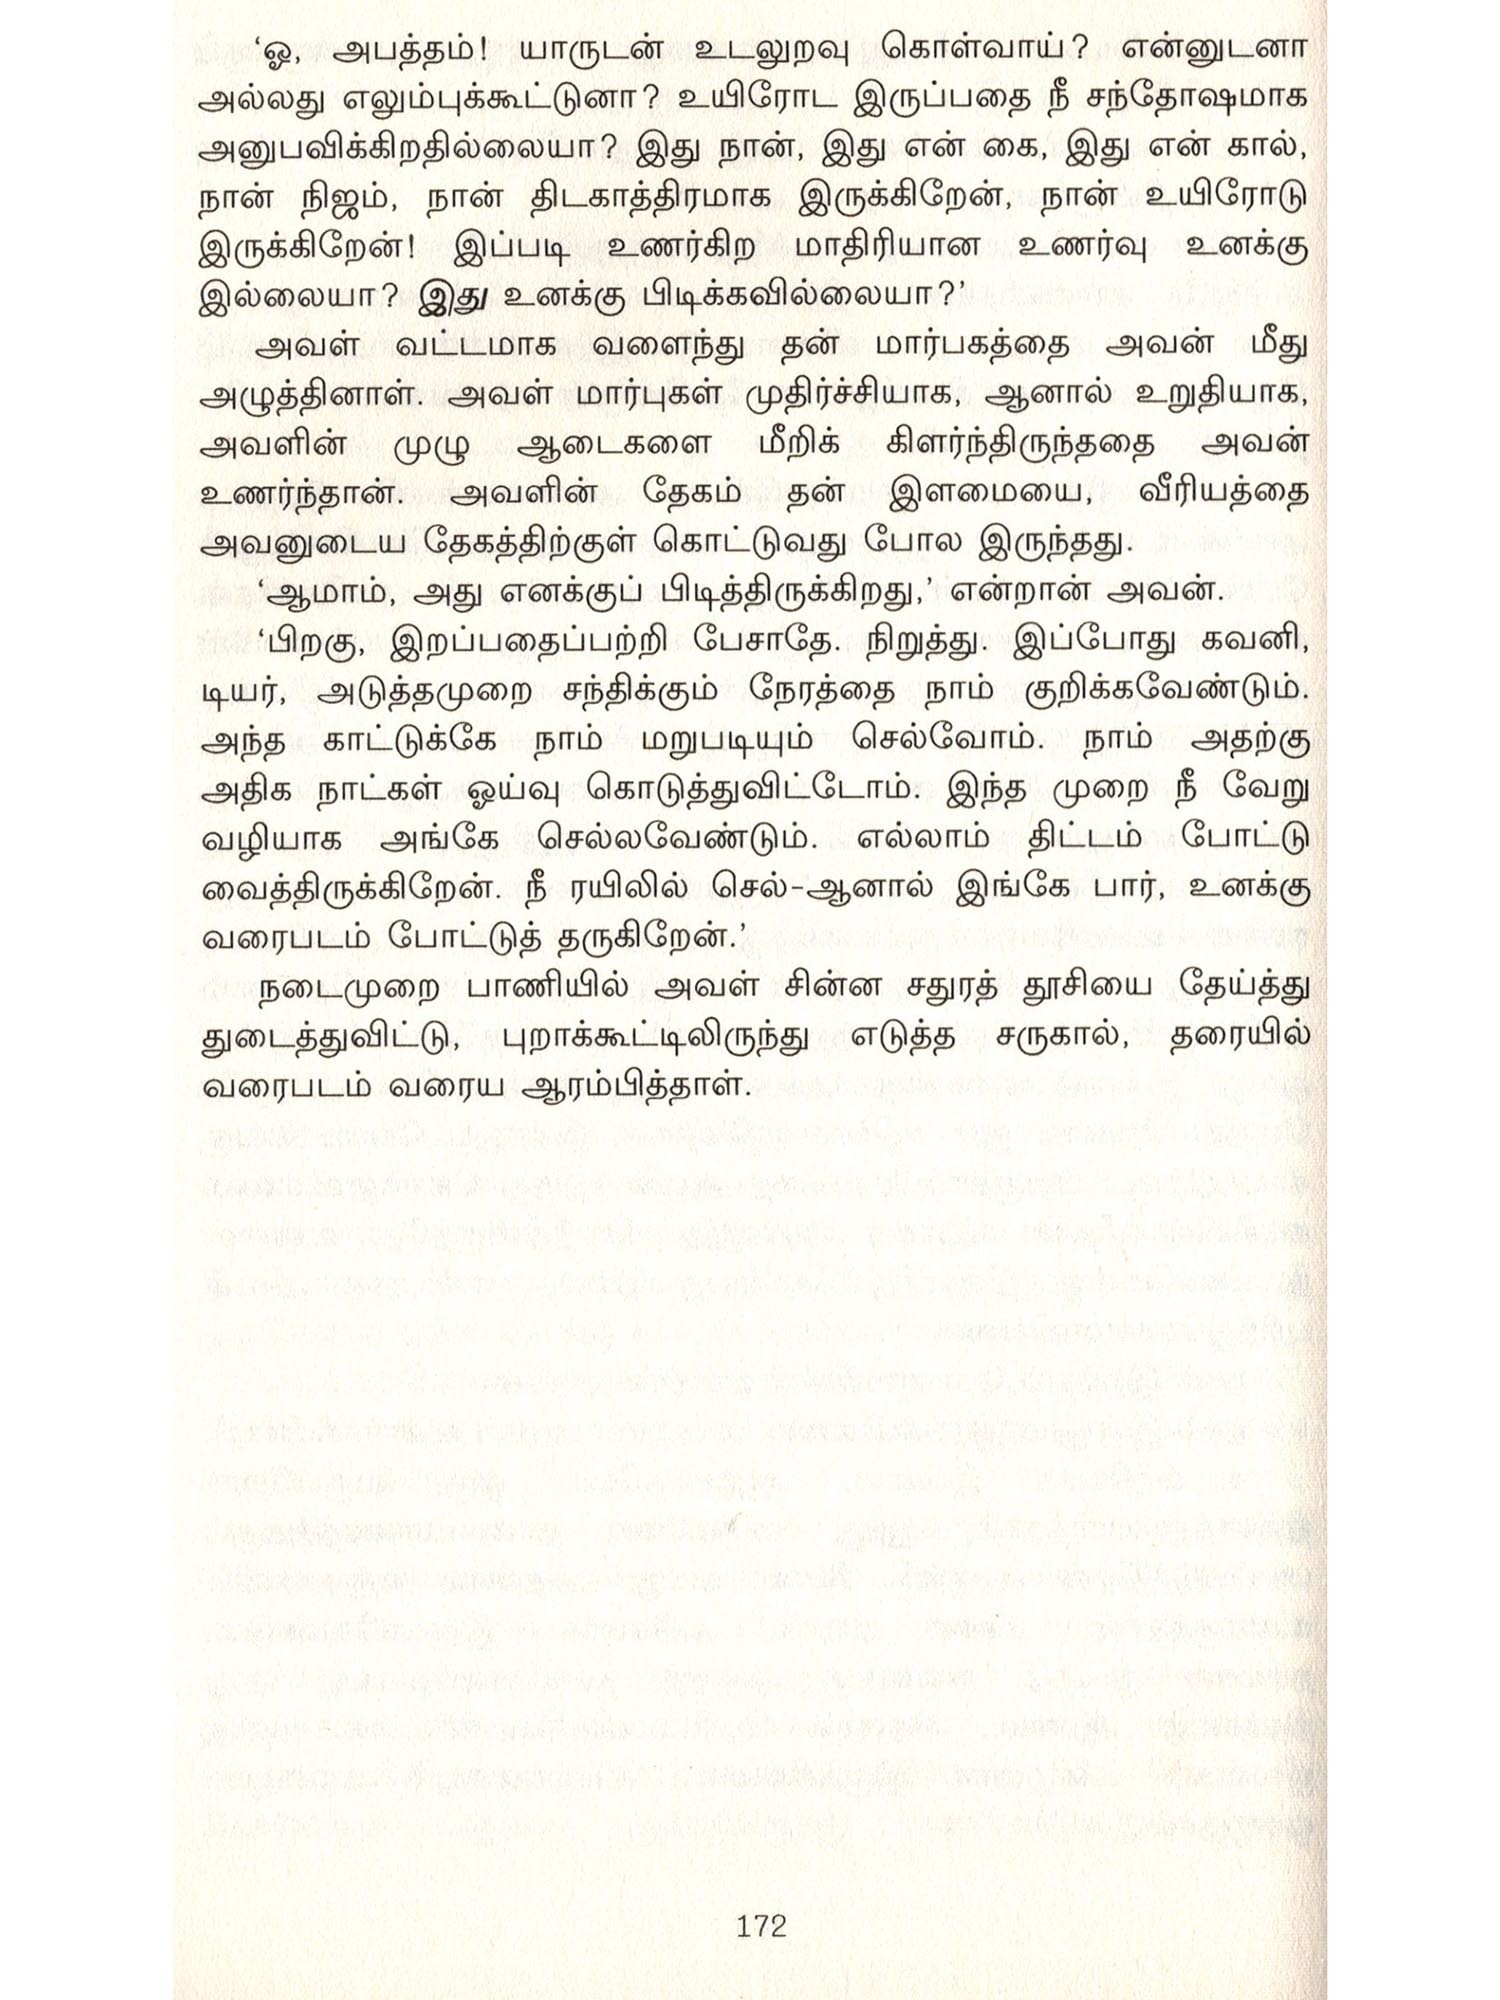 ‘ஓ, அபத்தம்! யாருடன் உடலுறவு கொள்வாய்? என்னுடனா
அல்லது எலும்புக்கூட்டுனா? உயிரோட இருப்பதை நீ சந்தோஷமாக
அனுபவிக்கிறதில்லையா? இது நான், இது என் கை, இது என் கால்,
நான் நிஜம், நான் திடகாத்திரமாக இருக்கிறேன், நான் உயிரோடு
இருக்கிறேன்! இப்படி உணர்கிற மாதிரியான உணர்வு உனக்கு
இல்லையா? இது உனக்கு பிடிக்கவில்லையா?’
அவள் வட்டமாக வளைந்து தன் மார்பகத்தை அவன் மீது
அழுத்தினாள். அவள் மார்புகள் முதிர்ச்சியாக, ஆனால் உறுதியாக,
அவளின் முழு ஆடைகளை மீறிக் கிளர்ந்திருந்ததை அவன்
உணர்ந்தான். அவளின் தேகம் தன் இளமையை, வீரியத்தை
அவனுடைய தேகத்திற்குள் கொட்டுவது போல இருந்தது.
‘ஆமாம், அது எனக்குப் பிடித்திருக்கிறது,’ என்றான் அவன்.
‘பிறகு, இறப்பதைப்பற்றி பேசாதே. நிறுத்து. இப்போது கவனி,
டியர், அடுத்தமுறை சந்திக்கும் நேரத்தை நாம் குறிக்கவேண்டும்.
அந்த காட்டுக்கே நாம் மறுபடியும் செல்வோம். நாம் அதற்கு
அதிக நாட்கள் ஓய்வு கொடுத்துவிட்டோம். இந்த முறை நீ வேறு
வழியாக அங்கே செல்லவேண்டும். எல்லாம் திட்டம் போட்டு
வைத்திருக்கிறேன். நீ ரயிலில் செல்-ஆனால் இங்கே பார், உனக்கு
வரைபடம் போட்டுத் தருகிறேன்.’
நடைமுறை பாணியில் அவள் சின்ன சதுரத் தூசியை தேய்த்து
துடைத்துவிட்டு, புறாக்கூட்டிலிருந்து எடுத்த சருகால், தரையில்
வரைபடம் வரைய ஆரம்பித்தாள்.
172